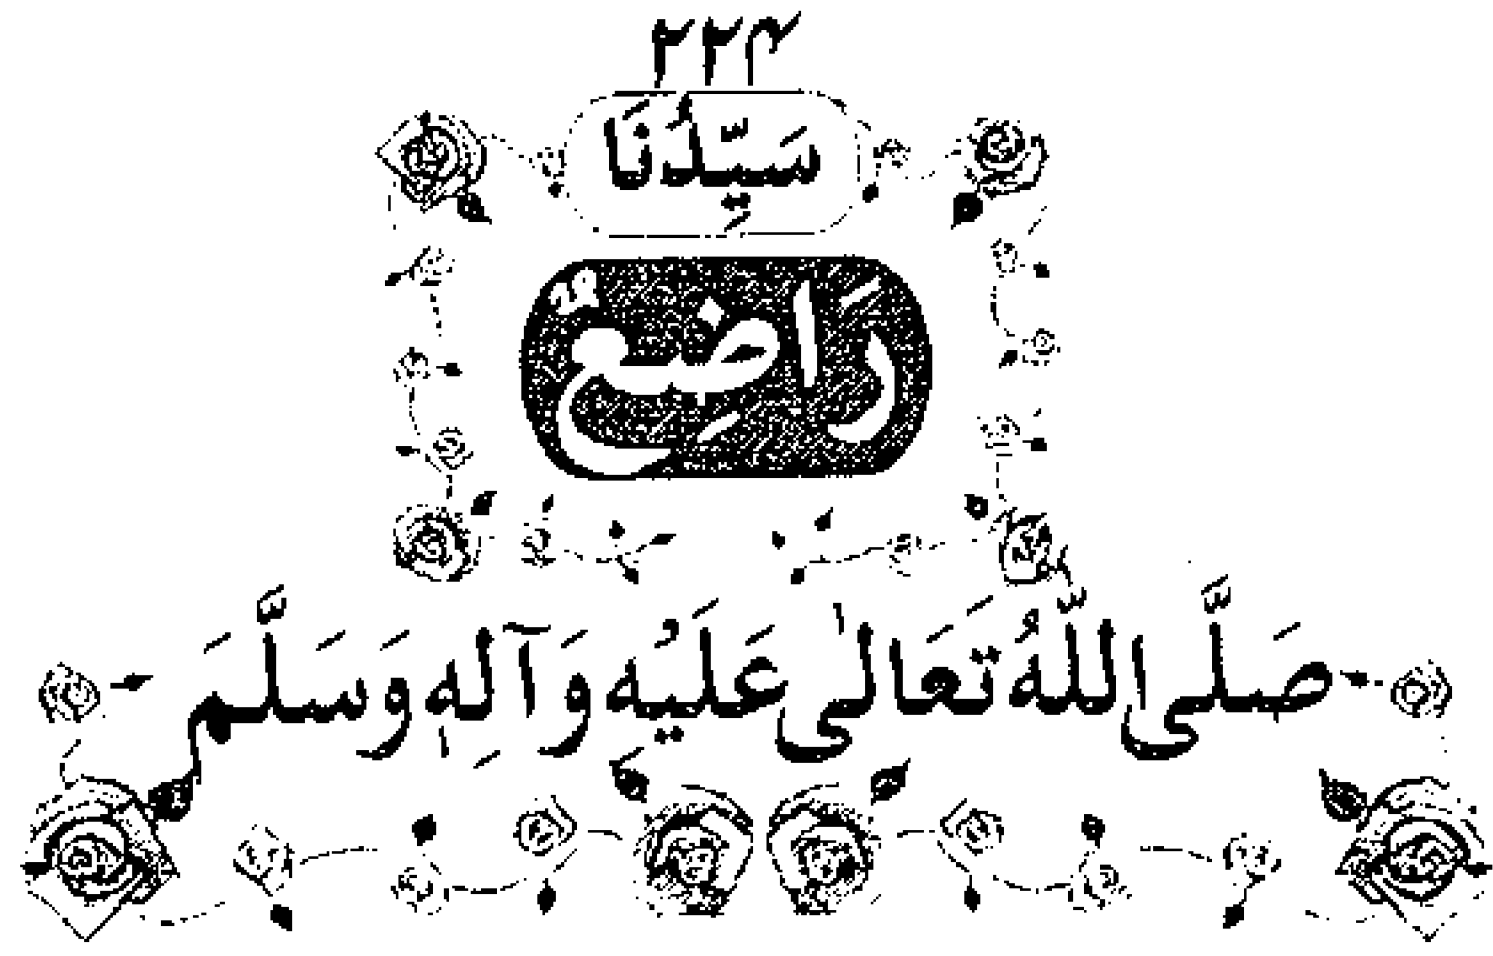 ۲۲۴
سَيِّدُنَا
رَاضِع
صَلَّى اللّٰهُ تَعَالىٰ عَلَيْهِ وَآلِهٖ وَسَلَّمَ